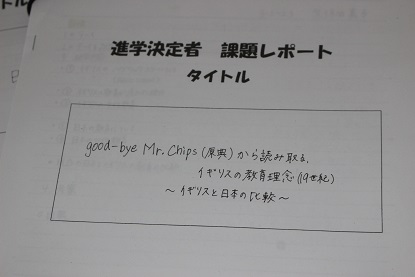 進学決定者 課題レポート
タイトル
good-bye Mr. Chips (原典) から読み取る、
イギリスの教育理念 (19世紀)
～イギリスと日本の比較～